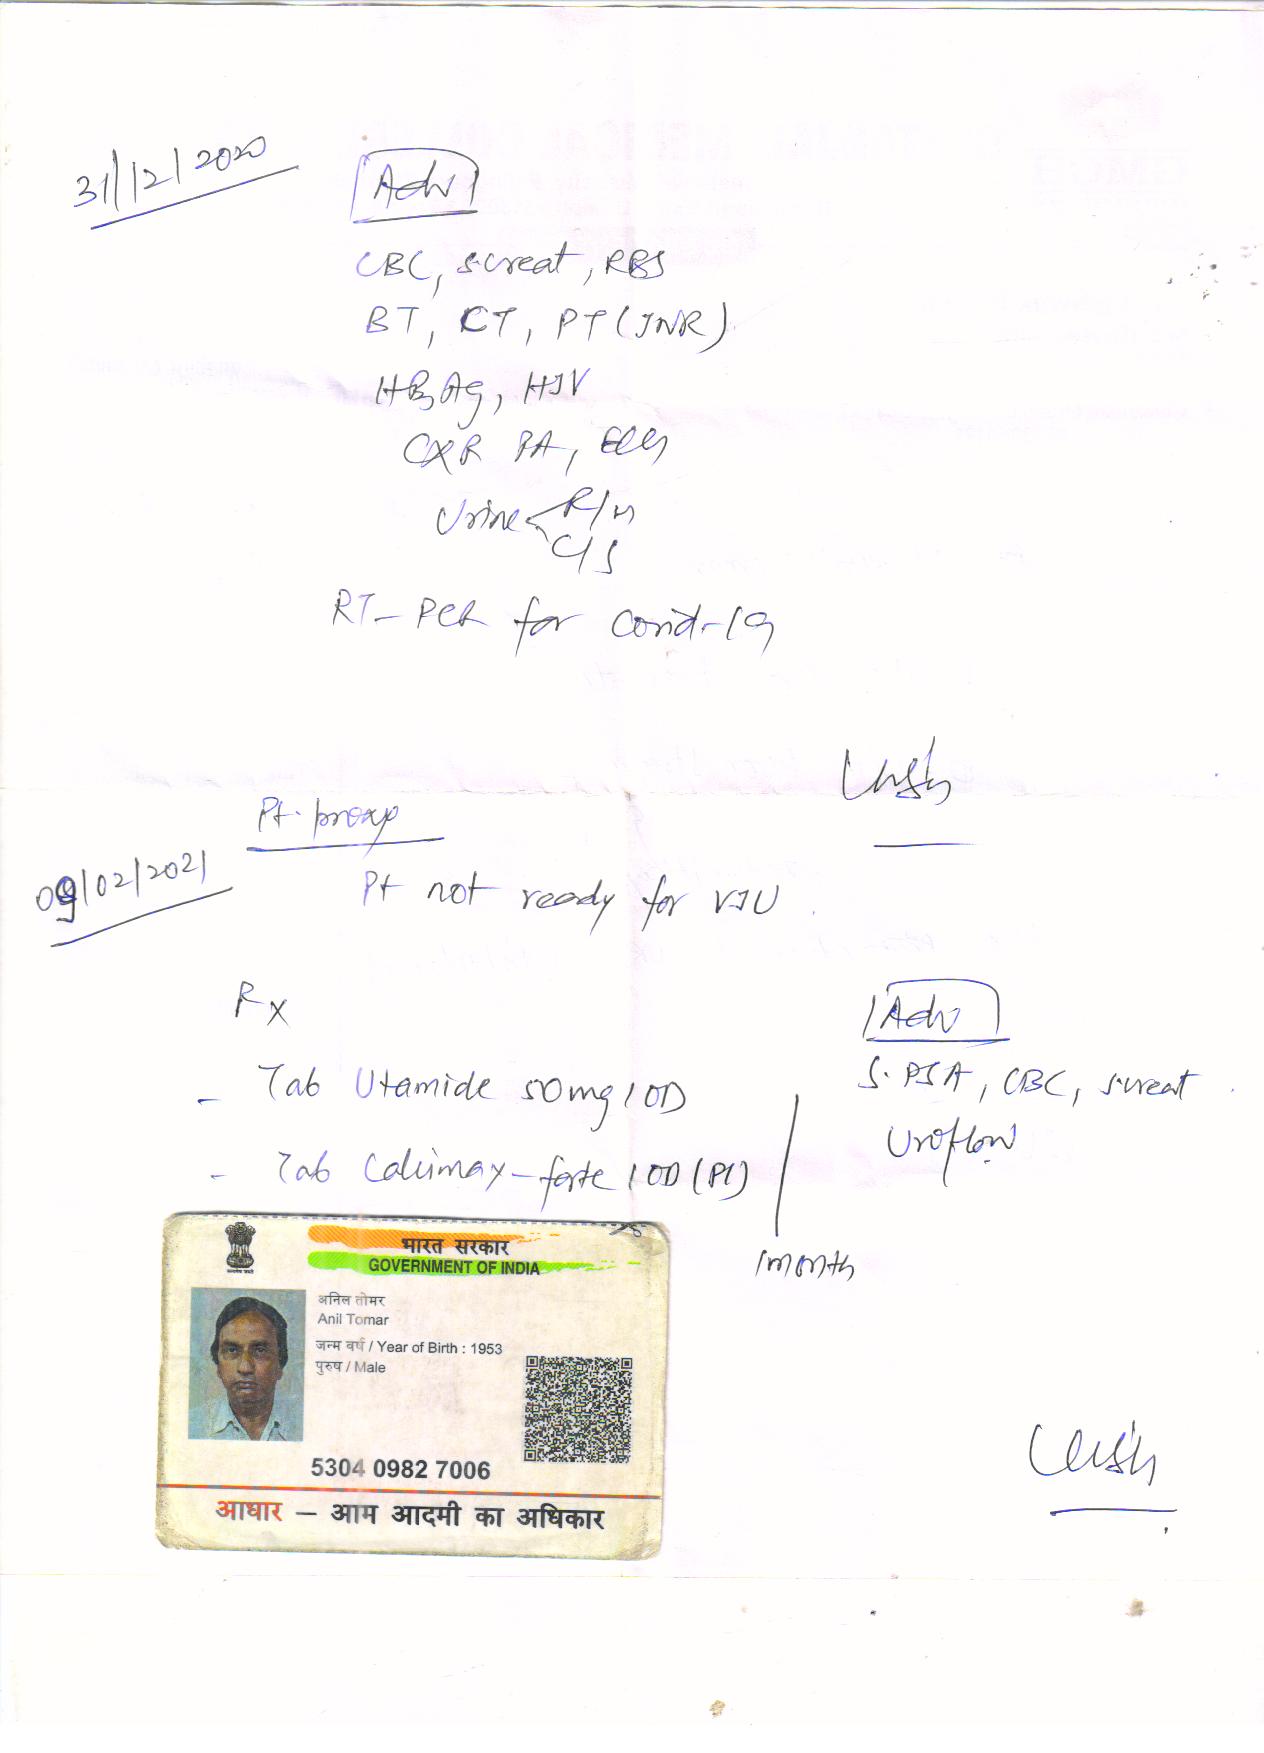 31/12/2020
Adv
CBC, s.creat, RBS
BT, CT, PT (INR)
HBsAg, HIV
CXR PA, ECG
Urine < R/M
C/S
RT-PCR for Covid-19
Pt. proxy
09/02/2021
Pt not ready for VIU.
Rx
- Tab Utamide 50mg 1 OD
- Tab Calcimax-forte 1 OD (P1)
1 month
Adv
S.PSA, CBC, s.creat
Uroflow
भारत सरकार
GOVERNMENT OF INDIA
अनिल तोमर
Anil Tomar
जन्म वर्ष / Year of Birth : 1953
पुरुष / Male
5304 0982 7006
आधार – आम आदमी का अधिकार